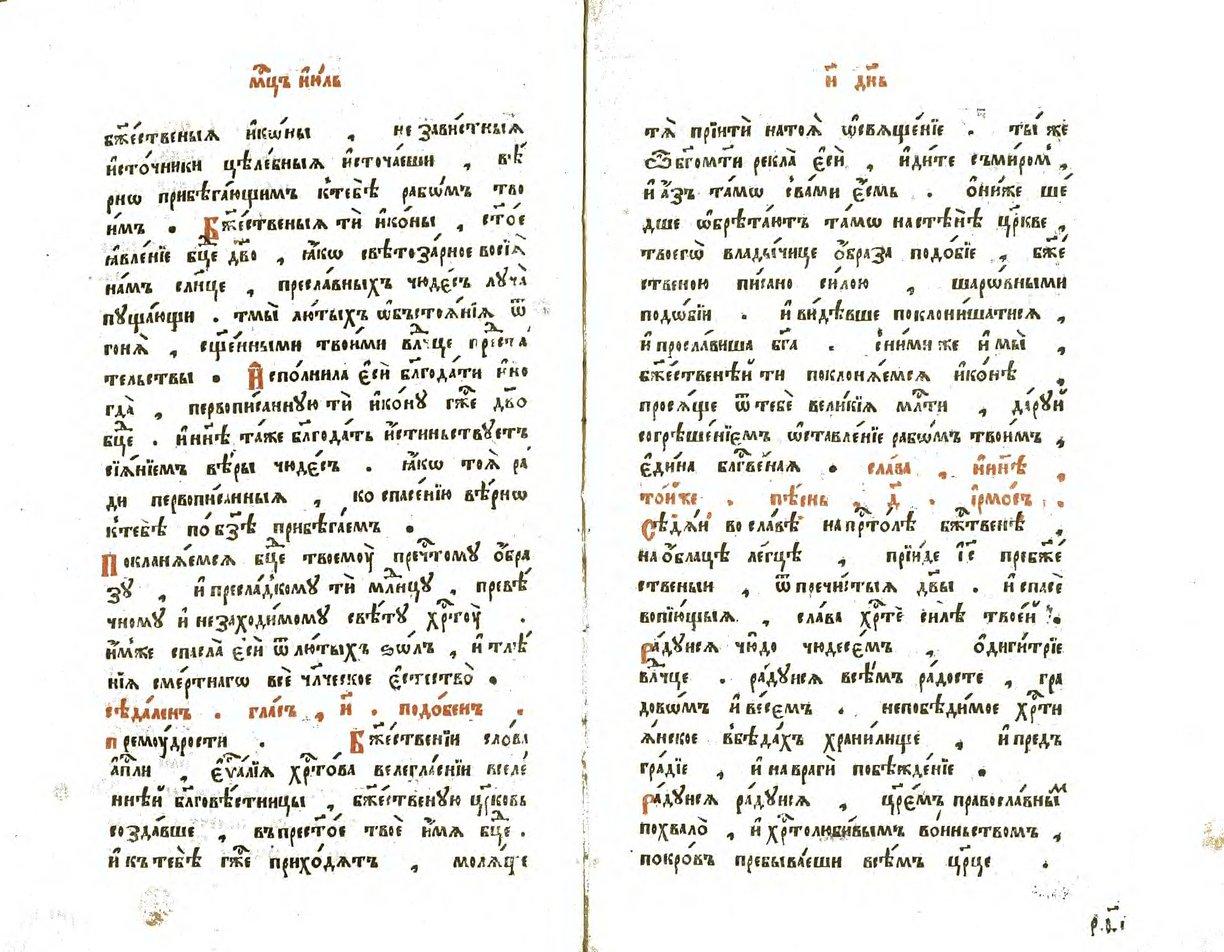 мⷭ҇цъ і҆ю́ль
бж҃е́ственыѧ и҆кѡ́ны , не зави́стныѧ
и҆сто́чники цѣле́бныѧ и҆сточа́еши , вѣ́
рнѡ прибѣга́ющимъ к̾тебѣ̀ рабѡ́мъ тво
и́мъ . Бж҃е́ственыѧ тѝ и҆ко́ны , ст҃о́е
ꙗ҆вле́нїе бц҃е дв҃о , ꙗ҆́кѡ свѣтоза́рное восїѧ̀
на́мъ сл҃нце , пресла́вныхъ чюде́съ лучѧ̀
пуща́ющи . тмы̀ лю́тыхъ ѡ҆бъстоѧ́нїѧ ѿ
гонѧ̀ , сщ҃е́нными твои́ми влⷣчце предста́
тельствы . И҆спо́лнила є҆сѝ блгⷣода́ти и҆но
гда̀ , первопи́санную тѝ и҆ко́ну гж҃е дв҃о
бц҃е . и҆ нн҃ѣ та́же блгⷣода́ть и҆́стиньствуетъ
сїѧ́нїемъ вѣ́ры чюде́съ . ꙗ҆́кѡ тоѧ̀ ра́
ди первопи́санныѧ , ко спасе́нїю вѣ́рнѡ
к̾тебѣ̀ по бз҃ѣ прибѣга́емъ .
Покланѧ́емсѧ бц҃е твоемоу̀ пречⷭ҇тому ѻ҆́бра
зу , и҆ пресла́дкому тѝ млⷣнцу , превѣ́
чному и҆ незаходи́мому свѣ́ту хрⷭ҇тоу̀ .
и҆́мже спасла̀ є҆сѝ ѿ лю́тыхъ ѕѡ́лъ , и҆ тлѣ́
нїѧ сме́ртнагѡ всѐ чл҃ческое є҆стество̀ .
сѣда́ленъ . гла́съ , и҃ . подо́бенъ .
премоу́дрости . Бж҃е́ственїи слова̀
а҆пⷭ҇ли , є҆ѵⷢ҇а́лїѧ хрⷭ҇то́ва велегла́снїи вселе́
ннѣ́й блгⷣовѣ́стницы , бж҃е́ственую цр҃ковь
созда́вше , въ прест҃о́е твоѐ и҆́мѧ бц҃е .
и҆ къ тебѣ̀ гж҃е прихо́дѧтъ , молѧ́ще
и҃ дн҃ь
тѧ̀ прїитѝ на тоѧ̀ ѡ҆свѧще́нїе . ты́ же
ѽ бг҃ома́ти рекла̀ є҆сѝ , и҆ди́те съ ми́ромъ ,
и҆ а҆́зъ та́мѡ с̾ва́ми є҆́смь . ѻ҆ни́же ше́
дше ѡ҆брѣта́ютъ та́мѡ на стѣнѣ̀ цр҃кве ,
твоегѡ̀ влады́чице ѻ҆́браза подо́бїе , бж҃е́
ственою пи́сано си́лою , шарѡ́вными
подѡ́бїи . и҆ ви́дѣвше поклони́шатисѧ ,
и҆ просла́виша бг҃а . с̾ни́ми же и҆ мы̀ ,
бж҃е́ственѣй ти поклонѧ́емсѧ и҆ко́нѣ ,
просѧ́ще ѿ тебѐ вели́кїѧ млⷭ҇ти , да́руй
согрѣше́нїемъ ѡ҆ставле́нїе рабѡ́мъ твои́мъ ,
є҆ди́на блгⷭ҇ве́наѧ . сла́ва , и҆ нн҃ѣ ,
то́йже . пѣ́снь , д҃ . і҆рмо́съ , .
Сѣдѧ́й во сла́вѣ на прⷭ҇то́лѣ бж҃твенѣ ,
на ѻ҆́блацѣ ле́гцѣ , прїи́де і҆с҃ пребж҃е́
ственыи , ѿ пречи́стыѧ дв҃ы . и҆ спасѐ
вопїю́щыѧ , сла́ва хрⷭ҇тѐ си́лѣ твое́й .
Ра́дуисѧ чю́до чюдесе́мъ , ѻ҆диги́трїе
влⷣчце . ра́дуисѧ всѣ́мъ ра́досте , гра
довѡ́мъ и҆ ве́семъ . непобѣди́мое хрⷭ҇ти
ѧ́нское в̾бѣда́хъ храни́лище , и҆ предъ
гра́дїе , и҆ на врагѝ побѣжде́нїе .
Ра́дуисѧ ра́дуисѧ , цр҃е́мъ правосла́вным
похвало̀ , и҆ хрⷭ҇толюби́вымъ во́иньством̾ъ ,
покро́въ пребыва́еши всѣ́мъ цр҃це .